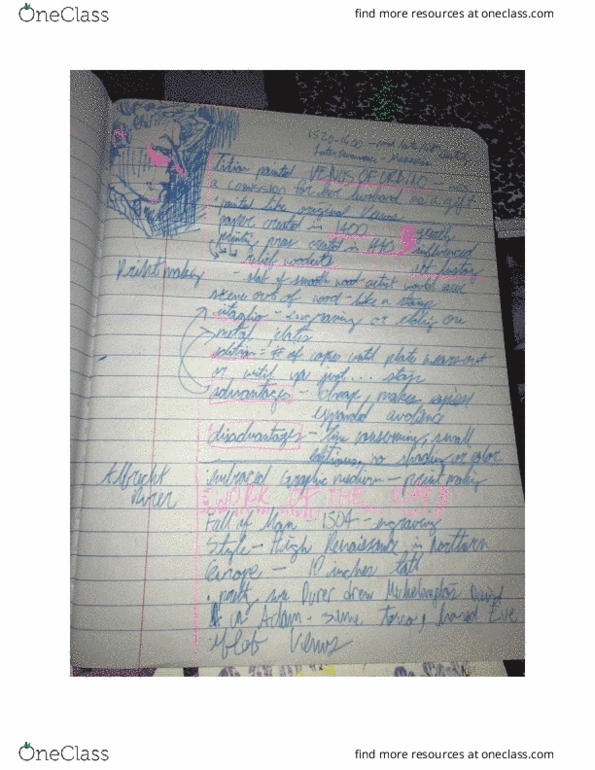 OneClass
find more resources at oneclass.com
1520-1600 -
Titian painted VENUS OF URBINO - was
a comission for her husband as a gift
painted like original Venus
paper created in 1400 greatly
printing press created in 1440 influenced
relief woodcuts art history
Printmaking - slab of smooth wood - artist would carve
scene out of wood - like a stamp
intaglio - engraving or etching one
metal plates
edition: # of copies until plate wears out
or until you just... stop
advantages - cheap, makes copies,
expanded audience
disadvantages - time consuming, small
editions, no shading or color
Albrecht embraced graphic medium - print making
Durer WORK OF THE DAY
Fall of Man - 1504 - engraving
Style - High Renaissance in Northern
Europe - 10 inches tall
pretty sure Durer drew Michelangelo's David
as Adam - same torso, based Eve
off of Venus
OneClass
find more resources at oneclass.com